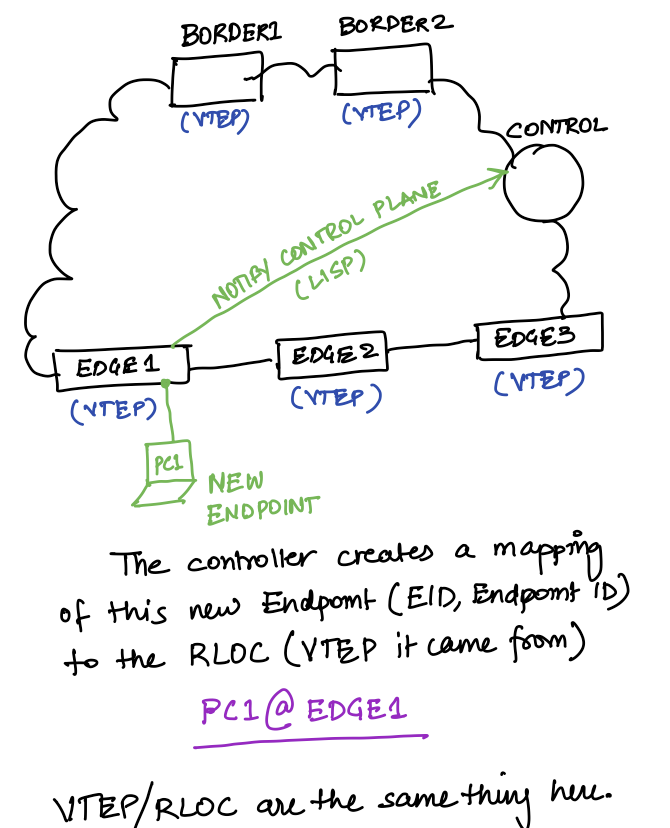 BORDER1
BORDER2
(VTEP)
(VTEP)
CONTROL
NOTIFY CONTROL PLANE
(LISP)
EDGE1
EDGE2
EDGE3
(VTEP)
(VTEP)
(VTEP)
PC1
NEW
ENDPOINT
The controller creates a mapping
of this new Endpoint (EID, Endpoint ID)
to the RLOC (VTEP it came from)
PC1@EDGE1
VTEP/RLOC are the same thing here.